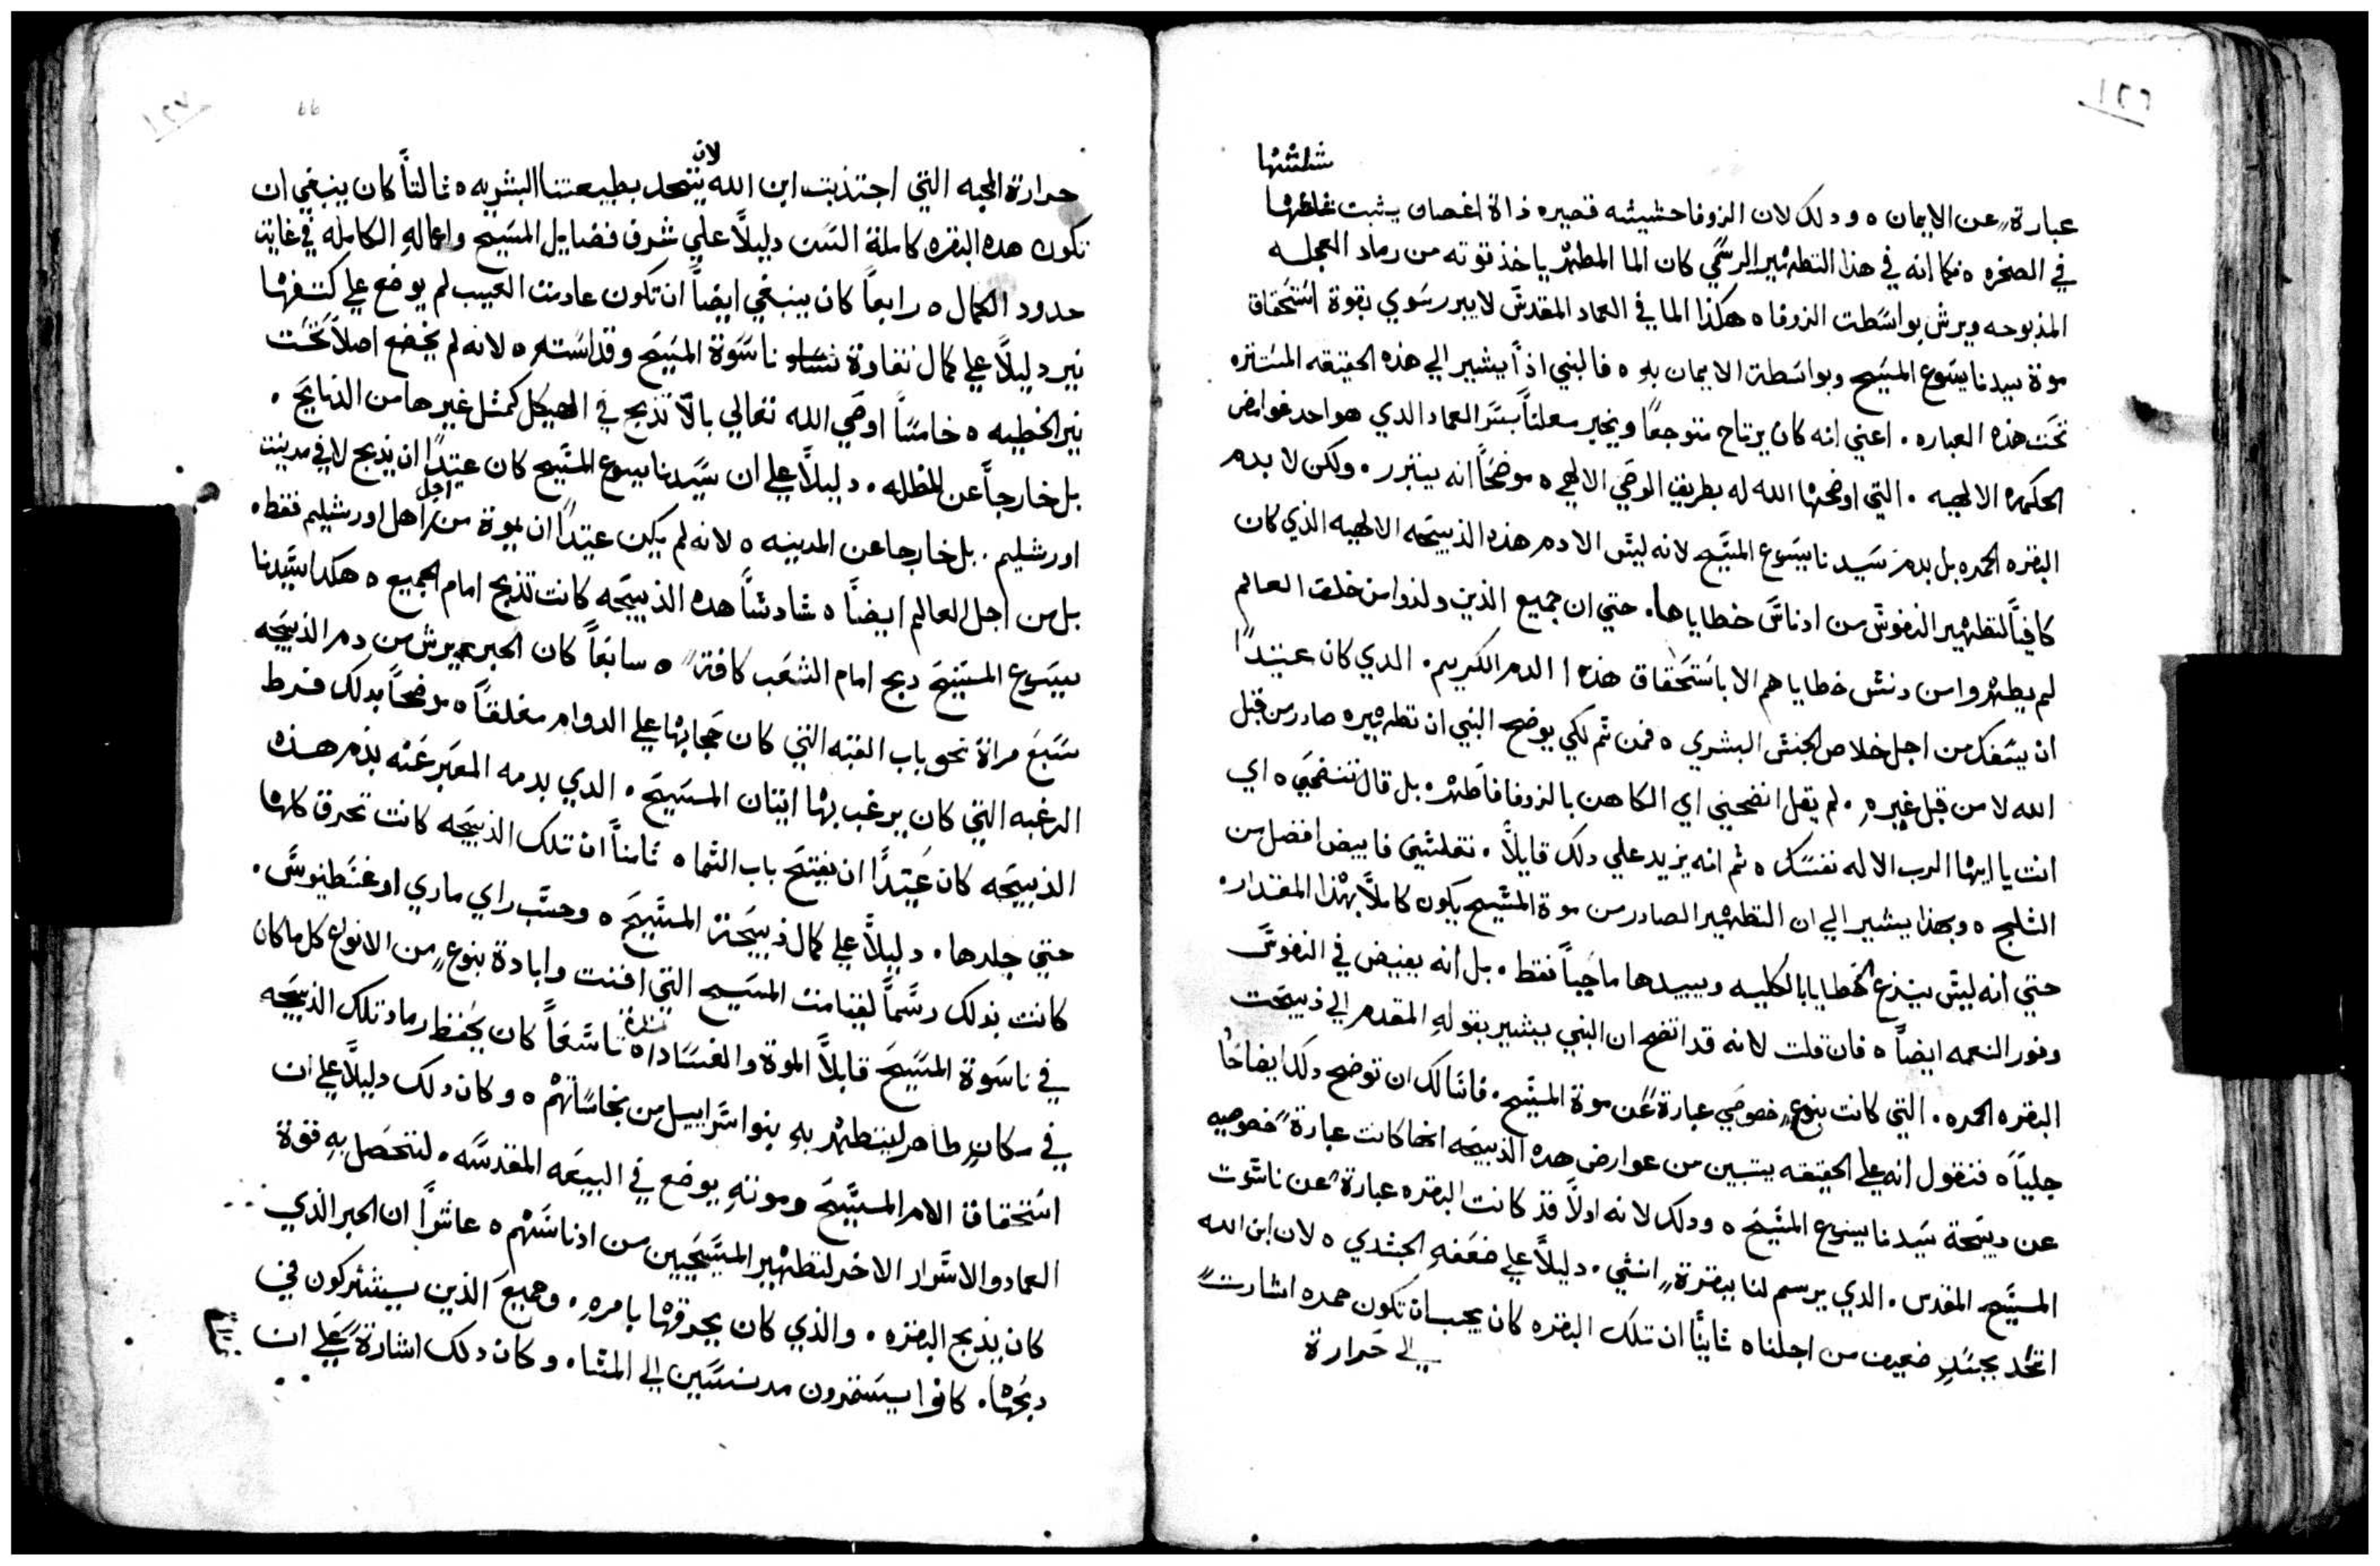 ١٢٦
شلشها
عبارة عن الايمان ه ودلك لان الزوفا حشيشه قصيره ذاة اغصان يثبت
في الصخره ه فكما انه في هذا التطهير الرسمي كان الما المطهر ياخذ قوته من رماد العجله
المذبوحه ويرش بواسطت الزوفا ه هكذا الما في العماد المقدس لا يبرر سوي بقوة استحقاق
موة سيدنا يسوع المسيح وبواسطة الايمان به ه فالنبي اذاً يشير الي هذه الحقيقه المستتره
تحت هذه العباره ٠ اعني انه كان يرتاح متوجعاً ويخبر معلناً بسر العماد الدي هو احد غوامض
الحكمه الالهيه ٠ التي اوضحها الله له بطريق الوحي الالهي ه موضحاً انه يتبرر ٠ ولكن لا بدم
البقره الحمره بل بدم سيدنا يسوع المسيح لانه ليس الا دم هذه الذبيحه الالهيه الذي كان
كافياً لتطهير النفوس من ادناس خطاياها ٠ حتي ان جميع الذين ولدوا من خلقة العالم
لم يطهروا من دنس خطاياهم الا باستحقاق هذا الدم الكريم ٠ الدي كان عتيداً
ان يسفك من اجل خلاص الجنس البشري ه فمن ثم لكي يوضح النبي ان تطهيره صادر من قبل
الله لا من قبل غيره ٠ لم يقل انضحيني اي الكاهن بالزوفا فاطهر ه بل قال تنضحني ه اي
انت يا ايها الرب الاله نفسك ه ثم انه يزيد علي دلك قايلاً ٠ تغلسني فابيض افضل من
الثلج ه وبهذا يشير الي ان التطهير الصادر من موة المسيح يكون كاملاً بهذا المقدار ٠
حتي انه ليس ينزع الخطايا بالكليه ويبيدها ماحياً فقط ٠ بل انه يفيض في النفوس
ونور النعمه ايضاً ه فان قلت لانه قد اتضح ان النبي يشير بقوله المقدم الي ذبيحت
البقره الحمره ٠ التي كانت بنوع خصوصي عبارة عن موة المسيح ٠ فاسالك ان توضح دلك ايضاحاً
جلياً ه فنقول انه علي الحقيقه يتبين من عوارض هده الذبيحه انها كانت عبارة خصوصيه
عن دبيحة سيدنا يسوع المسيح ه ودلك لانه اولاً قد كانت البقره عبارة عن ناسوت
المسيح المقدس ٠ الدي يرسم لنا ببقرة انثي ٠ دليلاً علي ضعفه الجسدي ه لان ابن الله
اتخد بجسدٍ ضعيف من اجلنا ه ثانياً ان تلك البقره كان يجب ان تكون حمره اشارت
الي حرارة
١٢٧
66
حرارة المحبه التي اجتذبت ابن الله لان يتحد بطبيعتنا البشريه ه ثالتاً كان ينبغي ان
تكون هده البقره كاملة السن دليلاً علي شرف فضايل المسيح واعماله الكامله في غايت
حدود الكمال ه رابعاً كان ينبغي ايضاً ان تكون عادمت العيب لم يوضع علي كتفها
نير دليلاً علي كمال نقاوة ناسوة المسيح وقداسته ه لانه لم يخضع اصلاً تحت
نير الخطيه ه خامساً اوصي الله تعالي بالّا تذبح في الهيكل كمثل غيرها من الذبايح ٠
بل خارجاً عن المظله ٠ دليلاً علي ان سيدنا يسوع المسيح كان عتيداً ان يذبح لا في مدينت
اورشليم ٠ بل خارجا عن المدينه ه لانه لم يكن عتيداً ان يموة من اجل اهل اورشليم فقط ه
بل من اجل العالم ايضاً ه شادشاً هده الذبيحه كانت تذبح امام الجميع ه هكدا سيدنا
يسوع المسيح دبح امام الشعب كافةً ه سابعاً كان الحبر يرش من دم الذبيحه
سبع مراة نحو باب القبه التي كان حجابها علي الدوام مغلقاً ه موضحاً بدلك فرط
الرغبه التي كان يرغب بها اتيان المسيح ٠ الدي بدمه المعبر عنه بدم هذه
الذبيحه كان عتيداً ان يفتح باب السما ه ثامناً ان تلك الذبيحه كانت تحرق كلها
حتي جلدها ٠ دليلاً علي كمال ذبيحة المسيح ه وحسب راي ماري اوغسطينوس ٠
كانت بذلك رسماً لقيامت المسيح التي افنت وابادة بنوع من الانواع كل ما كان
في ناسوة المسيح قابلاً الموة والفساد ه تاسعاً كان يحفظ رماد تلك الذبيحه
في مكان طاهر ليتطهر به بنوا سراييل من نجاساتهم ه وكان دلك دليلاً علي ان
استحقاق الام المسيح وموته يوضع في البيعه المقدسه ٠ لتحصل به قوة
العماد والاسرار الاخر لتطهير المسيحيين من ادناسهم ه عاشراً ان الحبر الذي
كان يذبح البقره ٠ والذي كان يحرقها بامره ٠ وجميع الذين يستركون في
دبحها ٠ كانوا يستمرون مدنسين الي المسا ٠ وكان دلك اشارة علي ان